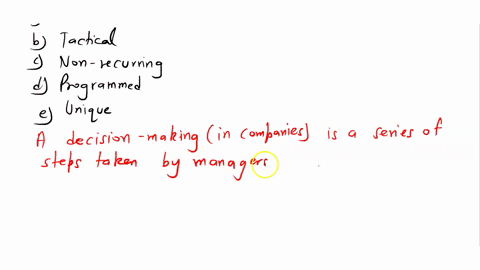 b) Tactical
c) Non-recurring
d) Programmed
e) Unique
A decision-making (in companies) is a series of
steps taken by managers